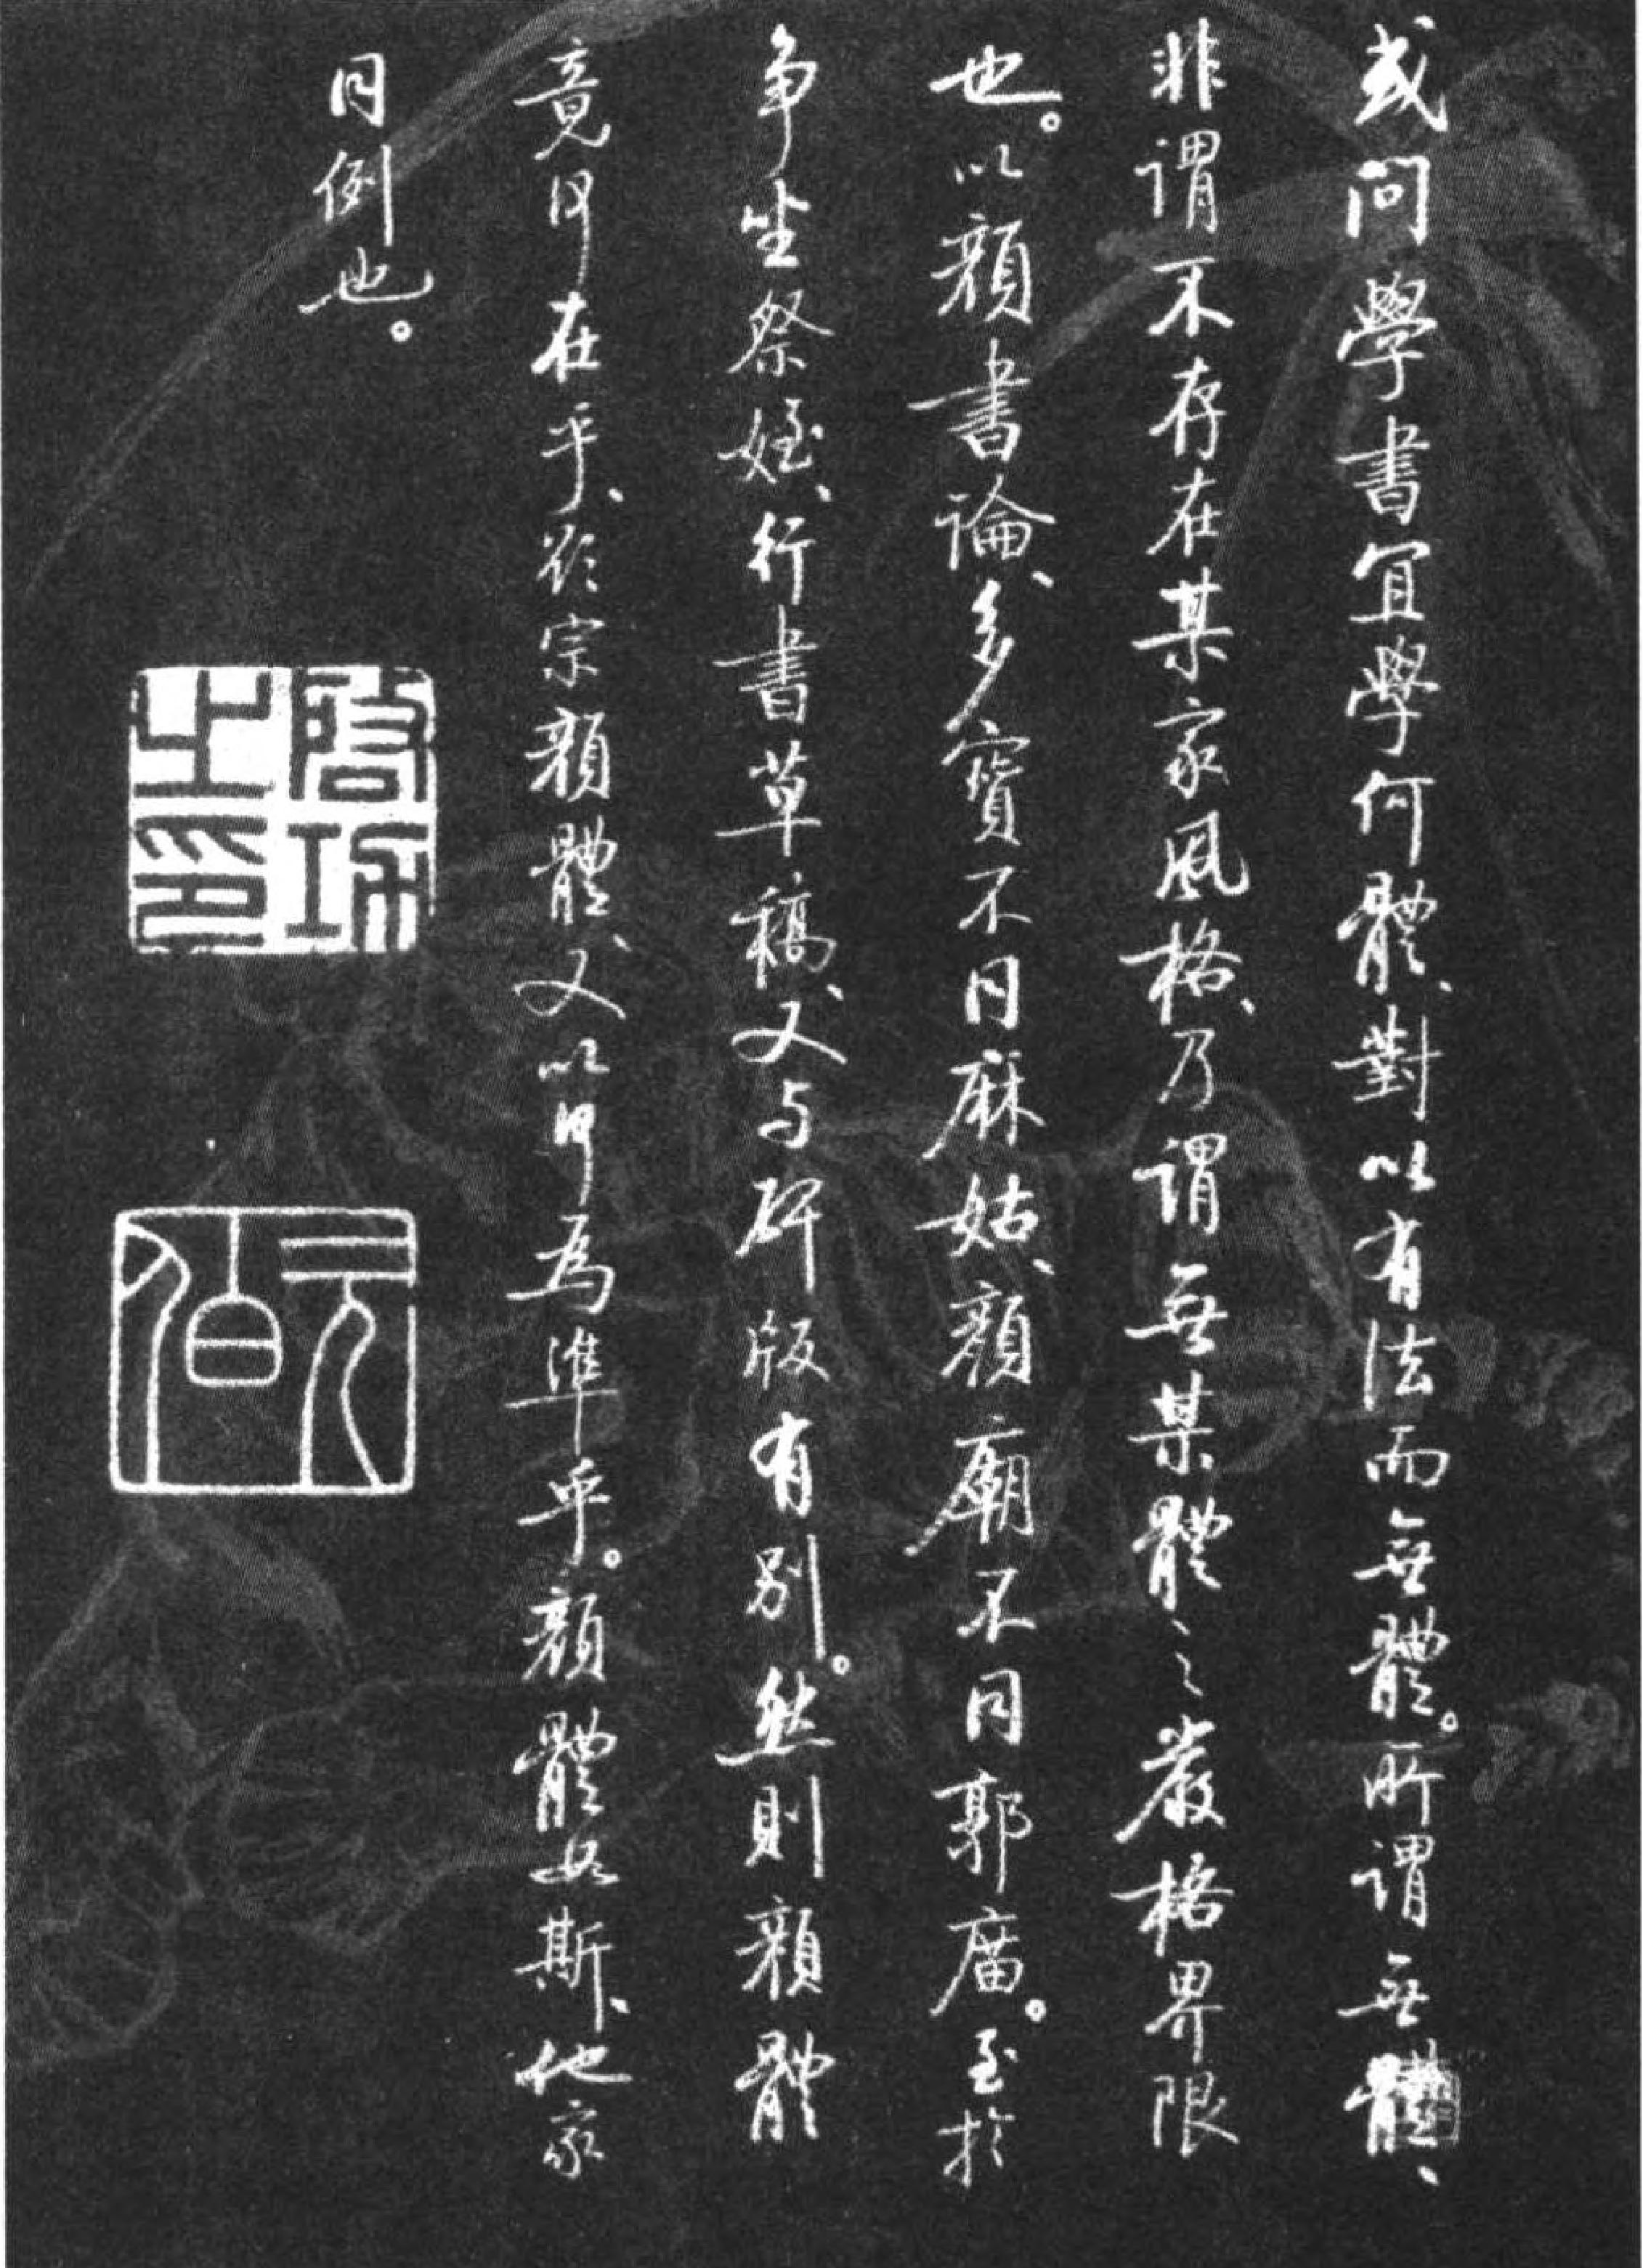 或問學書宜學何體、對以有法而無體。所謂無體、
非謂不存在某家風格、乃謂無某體之嚴格界限
也。以顏書論、多寶不同麻姑、顏廟不同郭廟。至於
争坐祭姪、行書草稿、又与碑版有別。然則顏體
竟何在乎、欲宗顏體、又以何為準乎。顏體如斯、他家
同例也。
啓功之印
元白